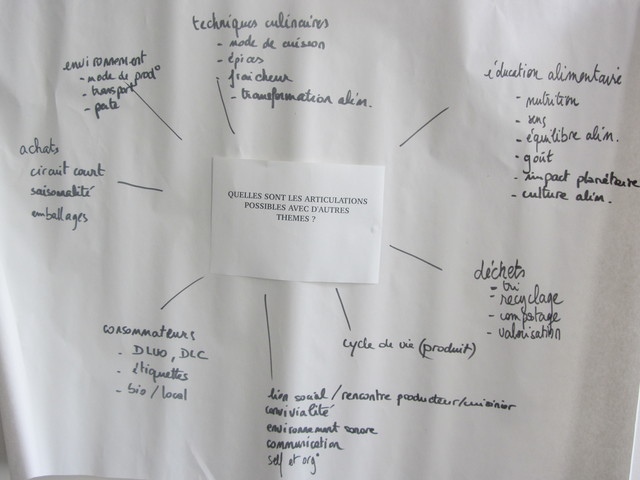 techniques culinaires
- mode de cuisson
- épices
- fraicheur
- transformation alim.
environnement
- mode de prod°
- transport
- perte
éducation alimentaire
- nutrition
- sens
- équilibre alim.
- goût
- impact planétaire
- culture alim.
achats
circuit court
saisonnalité
emballages
QUELLES SONT LES ARTICULATIONS
POSSIBLES AVEC D'AUTRES
THEMES ?
déchets
- tri
- recyclage
- compostage
- valorisation
consommateurs
- DLUO, DLC
- étiquettes
- bio / local
cycle de vie (produit)
lien social / rencontre producteur/cuisinier
convivialité
environnement sonore
communication
self et org°